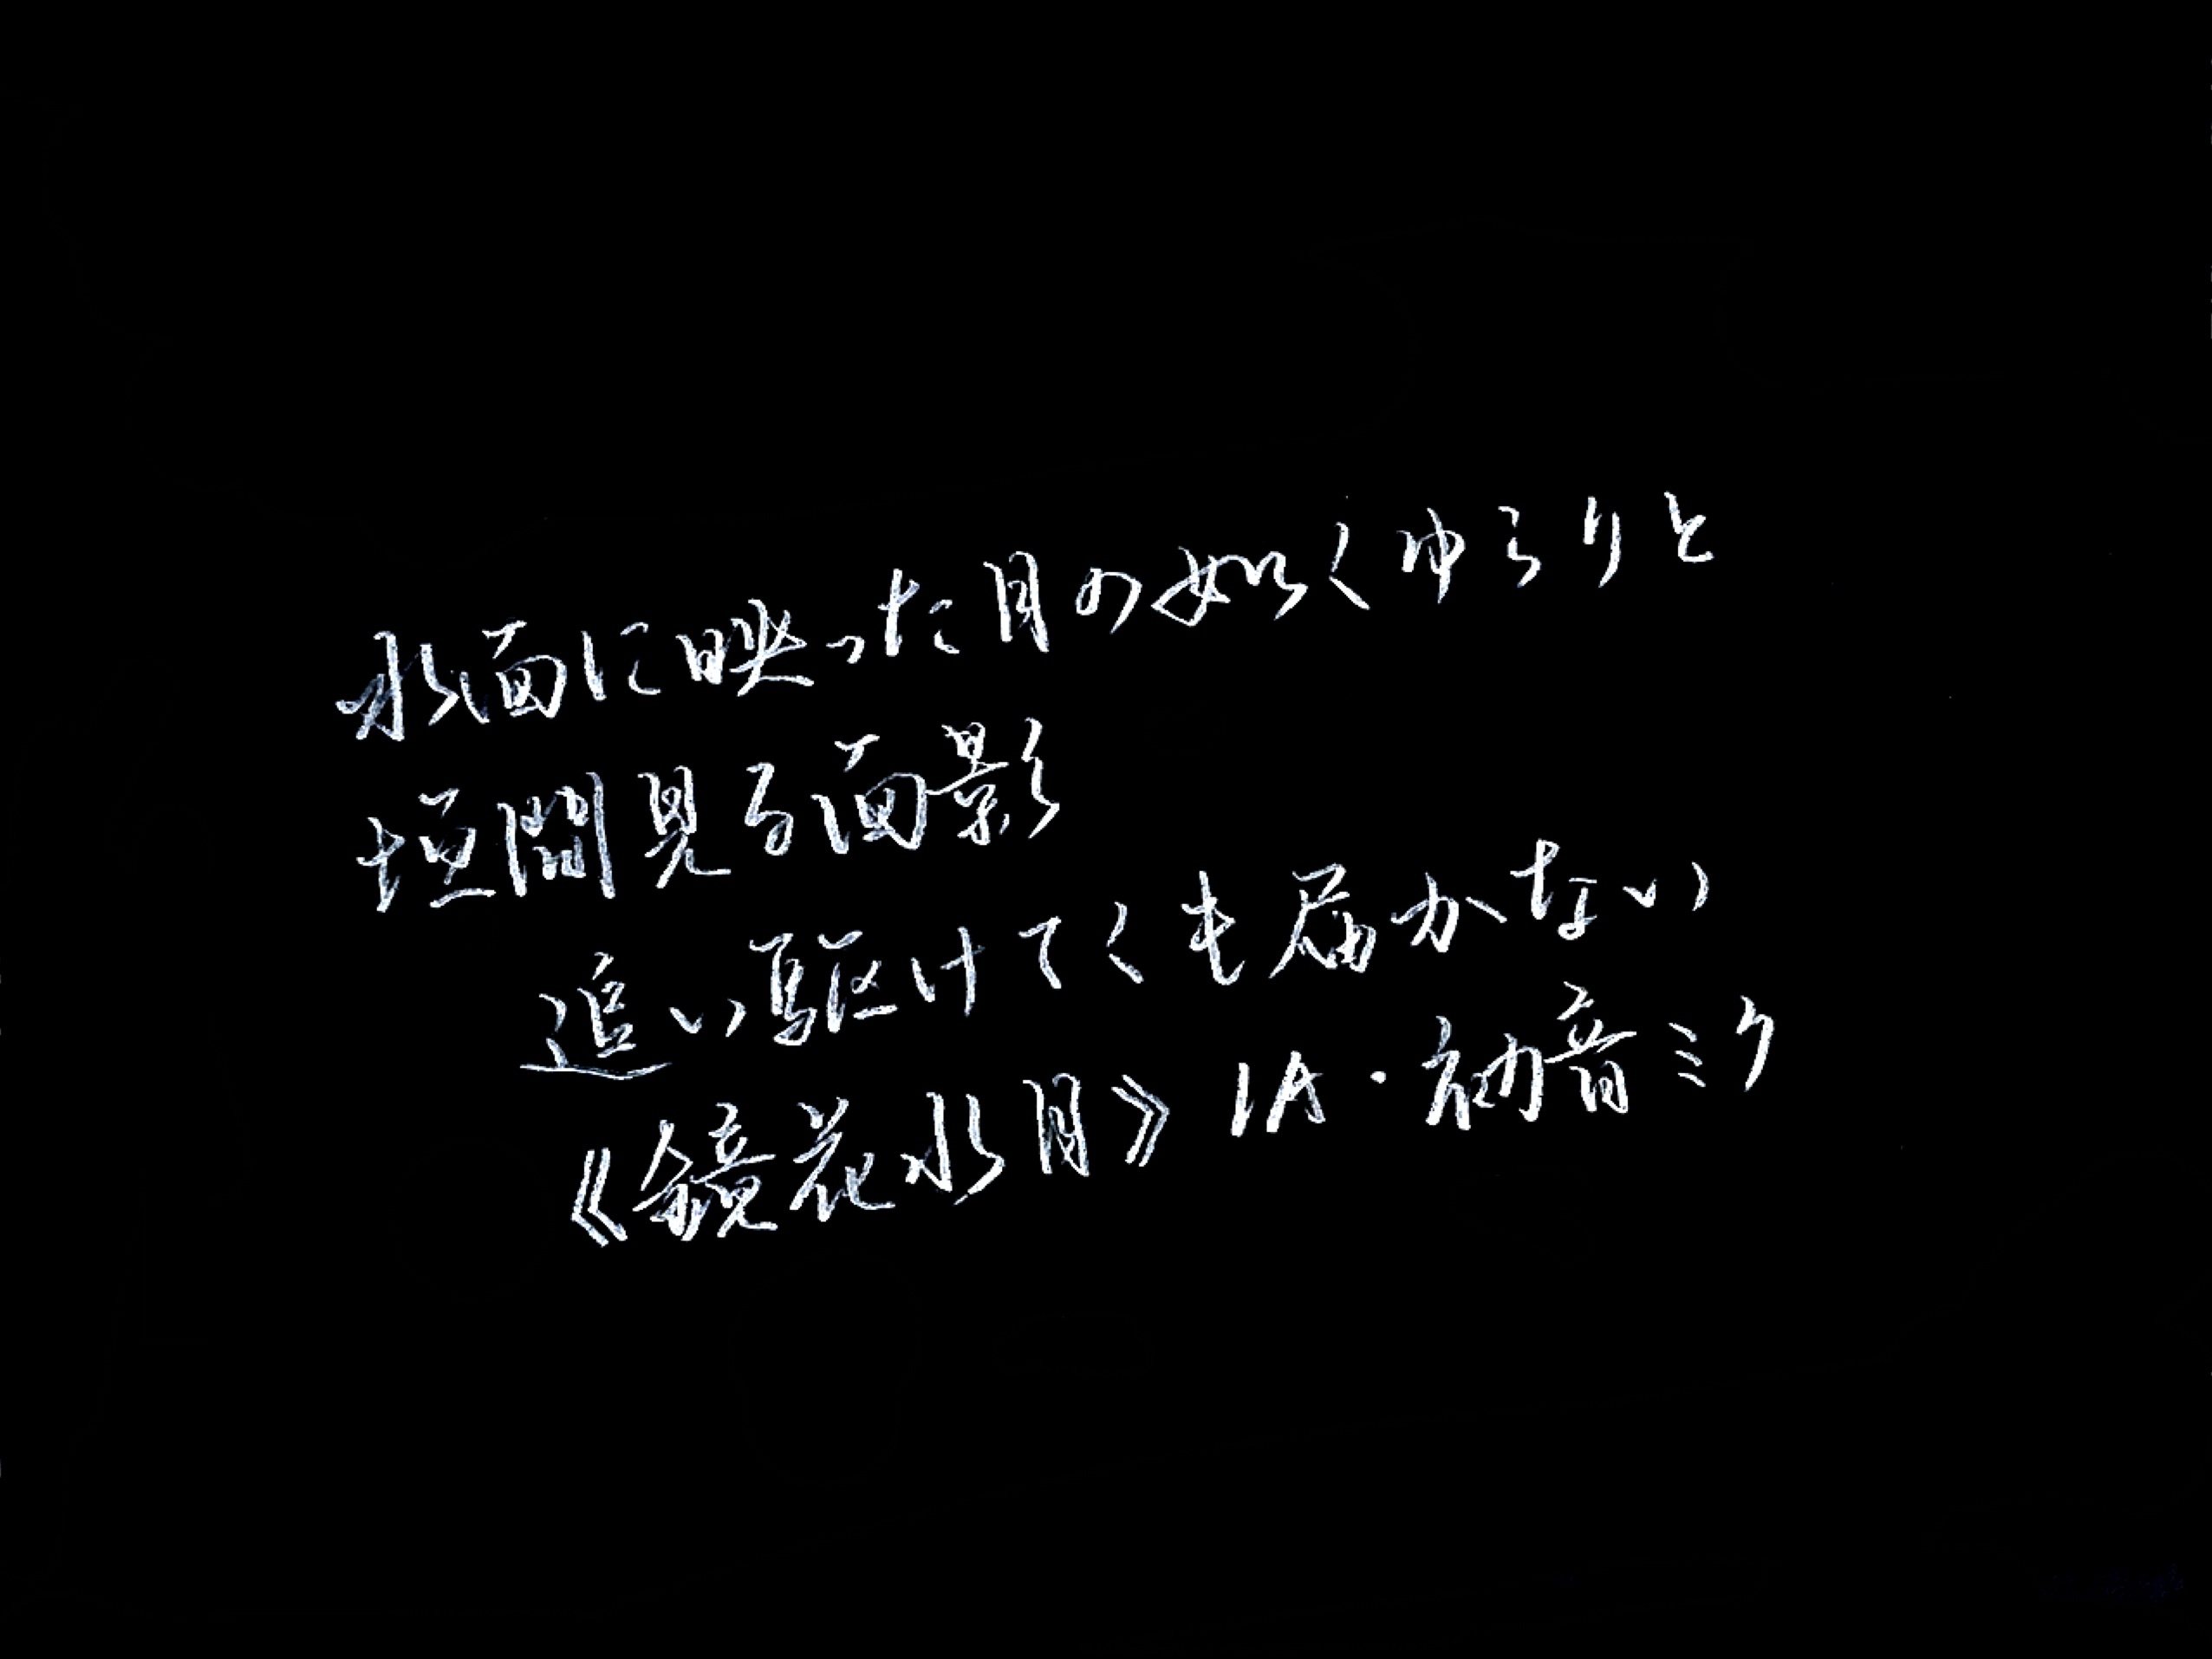 水面に映った月の如くゆらりと
垣間見る面影
追い駆けてくも届かない
《鏡花水月》IA・初音ミク